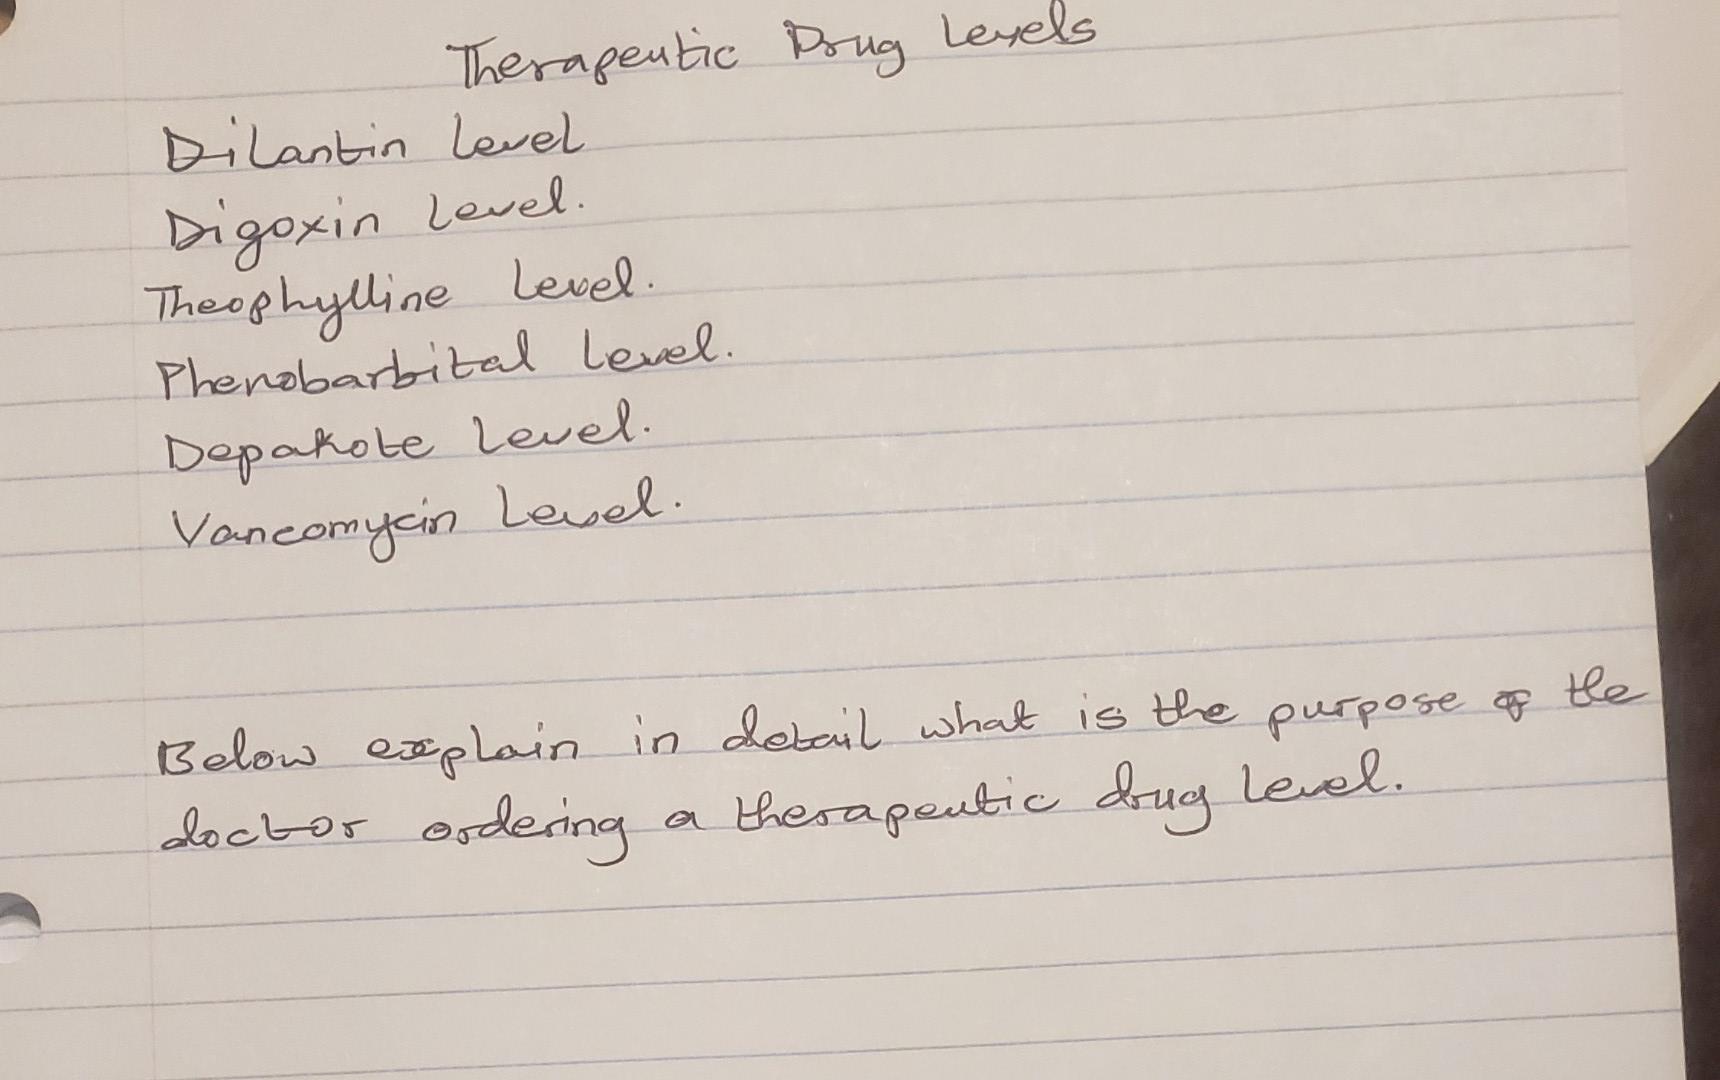 Therapeutic Drug Levels
Dilantin Level
Digoxin Level.
Theophylline Level.
Phenobarbital Level.
Depakote Level.
Vancomycin Level.
Below explain in detail what is the purpose of the
doctor ordering a therapeutic drug level.